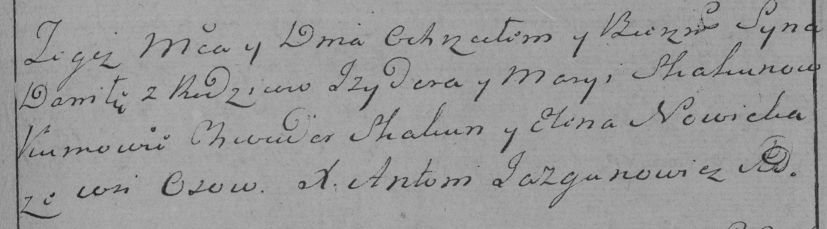 Tegoż Mca y Dnia Ochrzciłem y Bierzm Syna
Daniłę z Rodzicow Izydora y Maryi Skakunow
Kumowie Chwiedor Skakun y Elena Nowicka
ze wsi Osow. X. Antoni Jazgunowicz